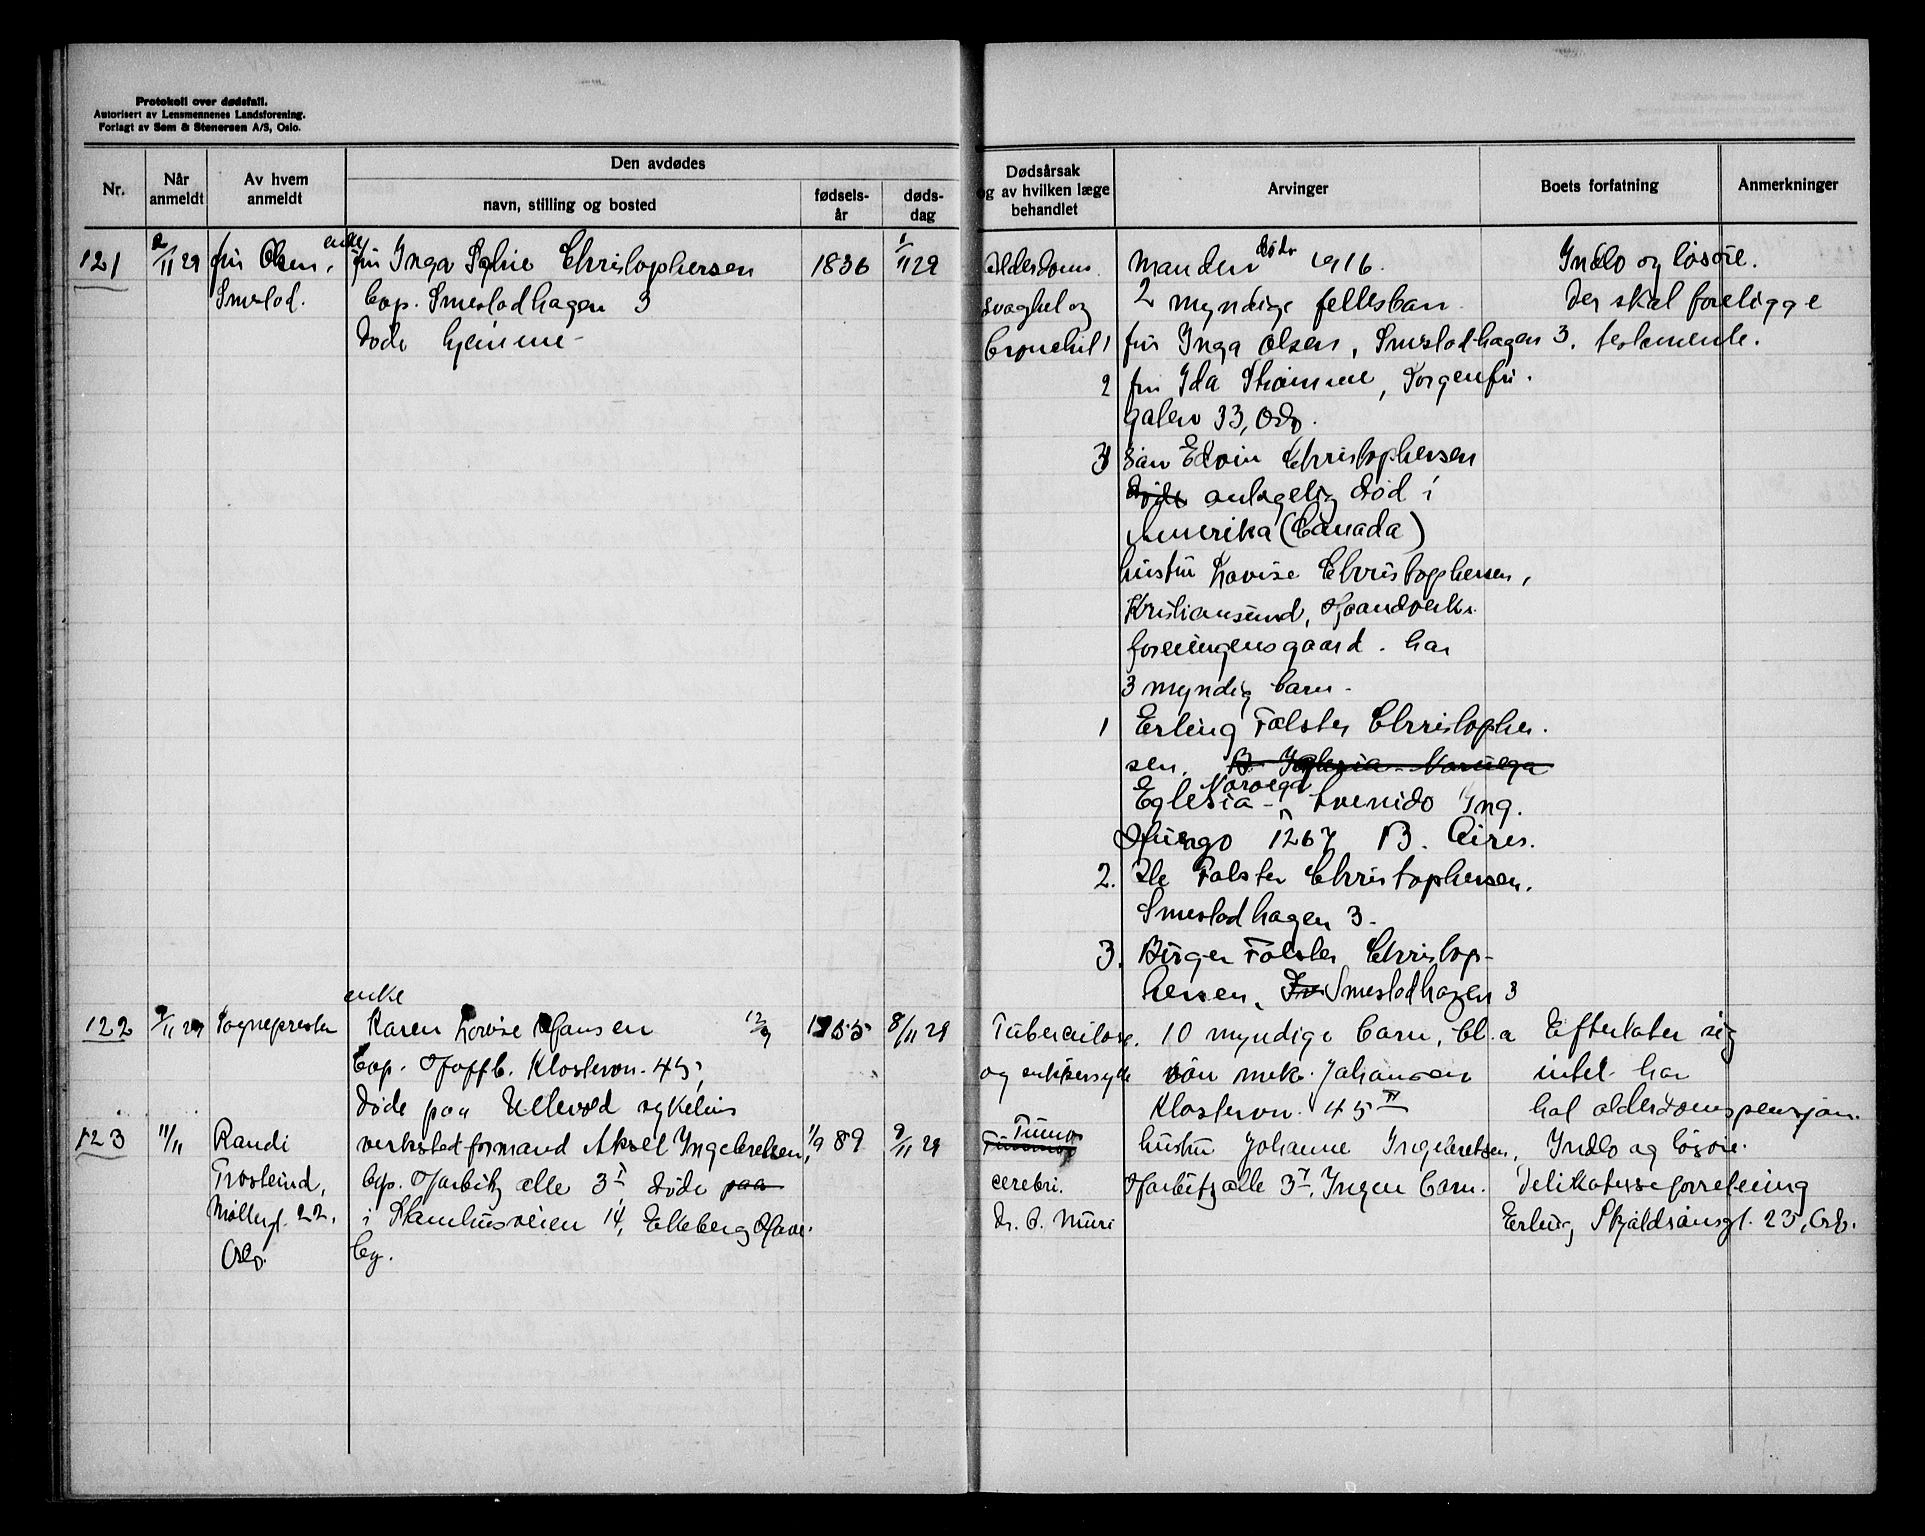 Protokoll over dødsfall.
Autorisert av Lensmennenes Landsforening.
Forlagt av Sem & Stenersen A/S, Oslo.
Nr.
Når anmeldt
Av hvem anmeldt
Den avdødes
navn, stilling og bosted
fødsels-år
døds-dag
Dødsårsak og av hvilken læge behandlet
Arvinger
Boets forfatning
Anmerkninger
121
2/11 29
fru Olsen,
Smestad.
enke
fru Inga Sofie Christophersen
bop. Smestadhagen 3
døde hjemme
1836
1/11 29
Alderdoms
svaghet og
bronchit
Manden døde 1916.
2 myndige fellesbarn
1 fru Inga Olsen, Smestadhagen 3.
2 fru Ida Thomme, Sorgenfri
gaten 33, Oslo.
3 søn Edvin Christophersen
døde antagelig død i
Amerika (Canada)
hustru Lovise Christophersen,
Kristiansund, Haandverks
foreningensgaard. har
3 myndig barn.
1 Erling Falster Christopher
sen.
Eglesia Noroega
Huergo 1267 B. Aires.
2. Ole Falster Christophersen.
Smestadhagen 3.
3. Birger Falster Christop-
hersen, Smestadhagen 3
Indbo og løsøre.
Der skal foreligge
testamente.
122
9/11 29
Sogneprester
enke
Karen Lovise Hansen 12/9
bop. Hoffsb. Klostervn. 45,
døde paa Ullevold sykehus
1855
8/11 29
Tuberculose.
og sukkersyke
10 myndige barn, bl.a
søn mek. Johansen
Klostervn. 45 II
Efterlater sig
intet. har
hat alderdomspensjon.
123
11/11
Randi
Trosterud,
Møllergt. 22.
Oslo.
verkstedformand Aksel Ingebretsen,
bop. Harbitz alle 3 I døde paa
i Stamhusveien 14, Ekeberg Have
by.
1/9 89
9/11 29
Tumor
cerebri.
Dr. O. Muri
hustru Johanne Ingebretsen,
Harbitz alle 3 I. Ingen barn.
Indbo og løsøre.
Delikatesseforretning
Erling Skjaldsønsgt. 23, Oslo.